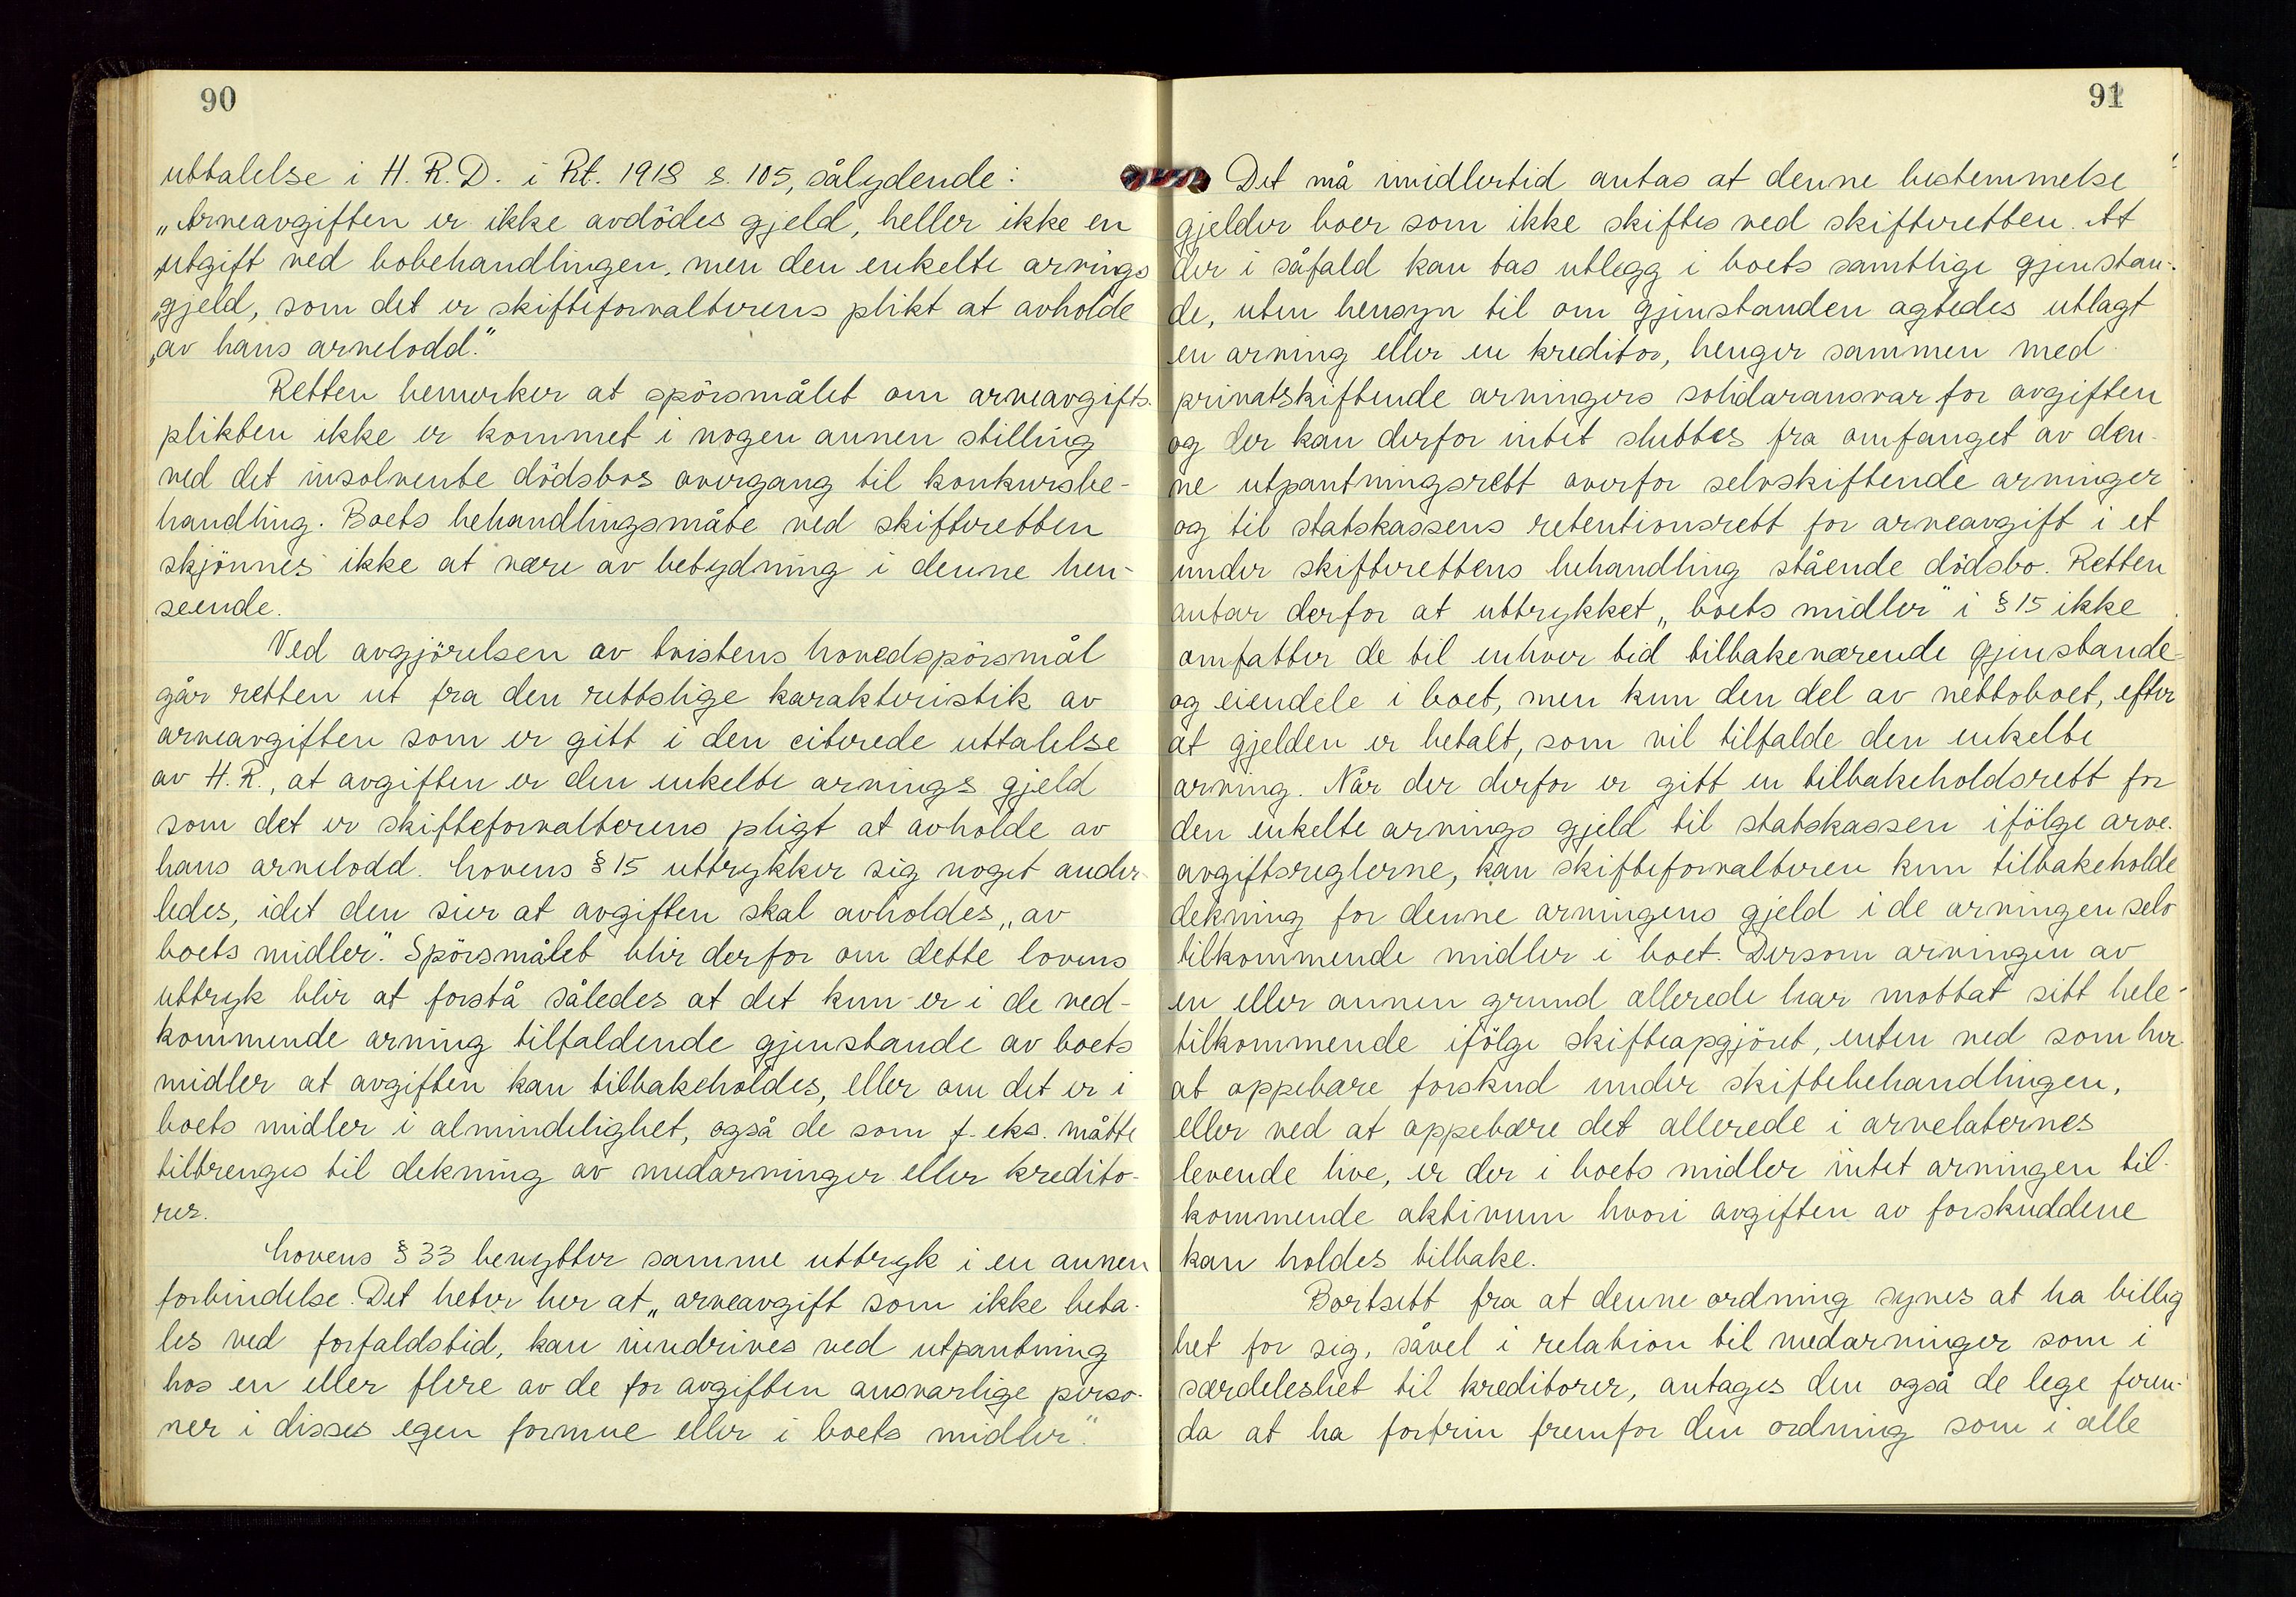 90
uttalelse i H. R. D. i Rt. 1918 s. 105, sålydende:
„Arveavgiften er ikke avdödes gjeld, heller ikke en
„utgift ved bobehandlingen, men den enkelte arvings
„gjeld, som det er skifteforvalterens plikt at avholde
„av hans arvelodd."
Retten bemerker at spörsmålet om arveavgifts-
plikten ikke er kommet i nogen annen stilling
ved det insolvente dödsbos overgang til konkursbe-
handling. Boets behandlingsmåte ved skifteretten
skjönnes ikke at være av betydning i denne hen-
seende.
Ved avgjörelsen av tvistens hovedspörsmål
går retten ut fra den rettslige karakteristik av
arveavgiften som er gitt i den citerede uttalelse
av H. R., at avgiften er den enkelte arvings gjeld
som det er skifteforvalterens pligt at avholde av
hans arvelodd. Lovens § 15 uttrykker sig noget ander-
ledes, idet den sier at avgiften skal avholdes „av
boets midler". Spörsmålet blir derfor om dette lovens
uttryk blir at forstå således at det kun er i de ved-
kommende arving tilfaldende gjenstande av boets
midler at avgiften kan tilbakeholdes, eller om det er i
boets midler i almindelighet, også de som f. eks. måtte
tiltrenges til dekning av medarvinger eller kredito-
rer.
Lovens § 33 benytter samme uttryk i en annen
forbindelse. Det heter her at „arveavgift som ikke beta-
les ved forfaldstid, kan inndrives ved utpantning
hos en eller flere av de for avgiften ansvarlige perso-
ner i disses egen formue eller i boets midler".
91
Det må imidlertid antas at denne bestemmelse
gjelder boer som ikke skiftes ved skifteretten. At
der i såfald kan tas utlegg i boets samtlige gjenstan-
de, uten hensyn til om gjenstanden agtedes utlagt
en arving eller en kreditor, henger sammen med
privatskiftende arvingers solidaransvar for avgiften
og der kan derfor intet sluttes fra omfanget av den-
ne utpantningsrett overfor selvskiftende arvinger
og til statskassens retentionsrett for arveavgift i et
under skifterettens behandling stående dödsbo. Retten
antar derfor at uttrykket „boets midler" i § 15 ikke
omfatter de til enhver tid tilbakeværende gjenstande
og eiendele i boet, men kun den del av nettoboet, efter
at gjelden er betalt, som vil tilfalde den enkelte
arving. Når der derfor er gitt en tilbakeholdsrett for
den enkelte arvings gjeld til statskassen ifölge arve-
avgiftsreglerne, kan skifteforvalteren kun tilbakeholde
dekning for denne arvingens gjeld i de arvingen selv
tilkommende midler i boet. Dersom arvingen av
en eller annen grund allerede har mottat sitt hele
tilkommende ifölge skifteopgjöret, enten ved som her
at oppebære forskud under skiftebehandlingen,
eller ved at oppebære det allerede i arvelaternes
levende live, er der i boets midler intet arvingen til-
kommende aktivum hvori avgiften av forskuddene
kan holdes tilbake.
Bortsett fra at denne ordning synes at ha billig
het for sig, såvel i relation til medarvinger som i
særdeleshet til kreditorer, antages den også de lege feren-
da at ha fortrin fremfor den ordning som i alle